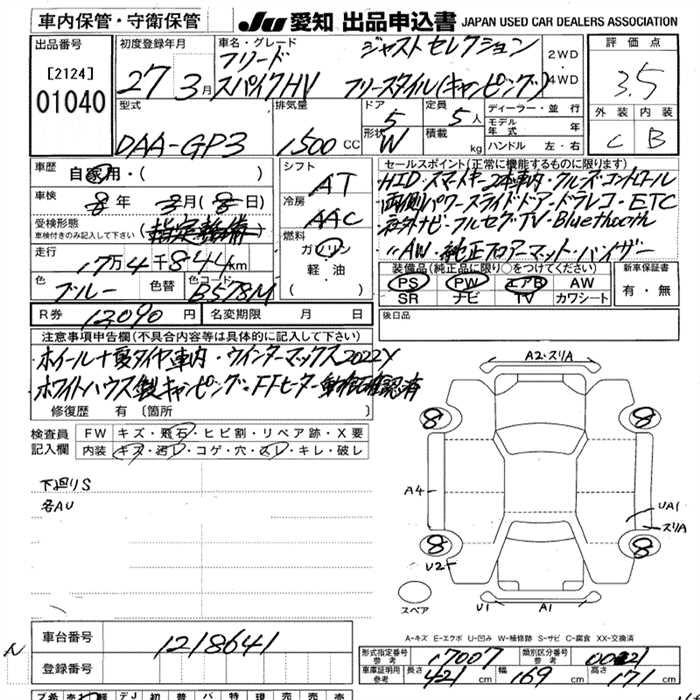 車内保管・守衛保管
JU 愛知 出品申込書 JAPAN USED CAR DEALERS ASSOCIATION
出品番号
[2124]
01040
初度登録年月
27 3月
車名・グレード
フリード ジャストセレクション
スパイクHV フリースタイル(キャンピング)
2WD
4WD
評価点
3.5
外装 内装
C B
型式
DAA-GP3
排気量
1500 CC
ドア
5
形状
W
定員
5人
積載
kg
ディーラー・並行
モデル年式 年
ハンドル 左・右
車歴
自家用・( )
車検
8年 3月(8日)
受検形態
車検付きのみ記入して下さい
(指定整備)
走行
17万4千844km
色
ブルー
色替
色コード
B578M
シフト
AT
冷房
AAC
燃料
ガソリン
軽・油
( )
セールスポイント(正常に機能するものに限ります)
HID・スマートキー2本車内・クルーズ・コントロール
両側パワースライドドア・ドラレコ・ETC
社外ナビ・フルセグ・TV・Bluethooth
〃AW・純正フロアーマット・バイザー
装備品(純正品に限り○をつけてください)
PS PW エアB AW
SR ナビ TV カワシート
新車保証書
有・無
R券 12090円
名変期限 月 日
後日品
注意事項申告欄(不具合内容等は具体的に記入して下さい)
ホイール+夏タイヤ車内・ウインターマックス2022Y
ホワイトハウス製キャンピング・FFヒーター動作確認済有
修復歴 有 〔箇所
検査員
記入欄
FW キズ・飛石・ヒビ割・リペア跡・X要
内装 キズ・汚レ・コゲ・穴・スレ・キレ・破レ
下廻りS
各AU
A2・スリA
8
8
A4
UA1
スリA
8
8
U2
スペア
U1
A1
A-キズ E-エクボ U-凹み W-補修跡 S-サビ C-腐食 XX-交換済
車台番号 1218641
登録番号
形式指定番号
参考
17007
類別区分番号
参考
車庫証明用
参考
長さ 421 cm 幅 169 cm 高さ 171 cm